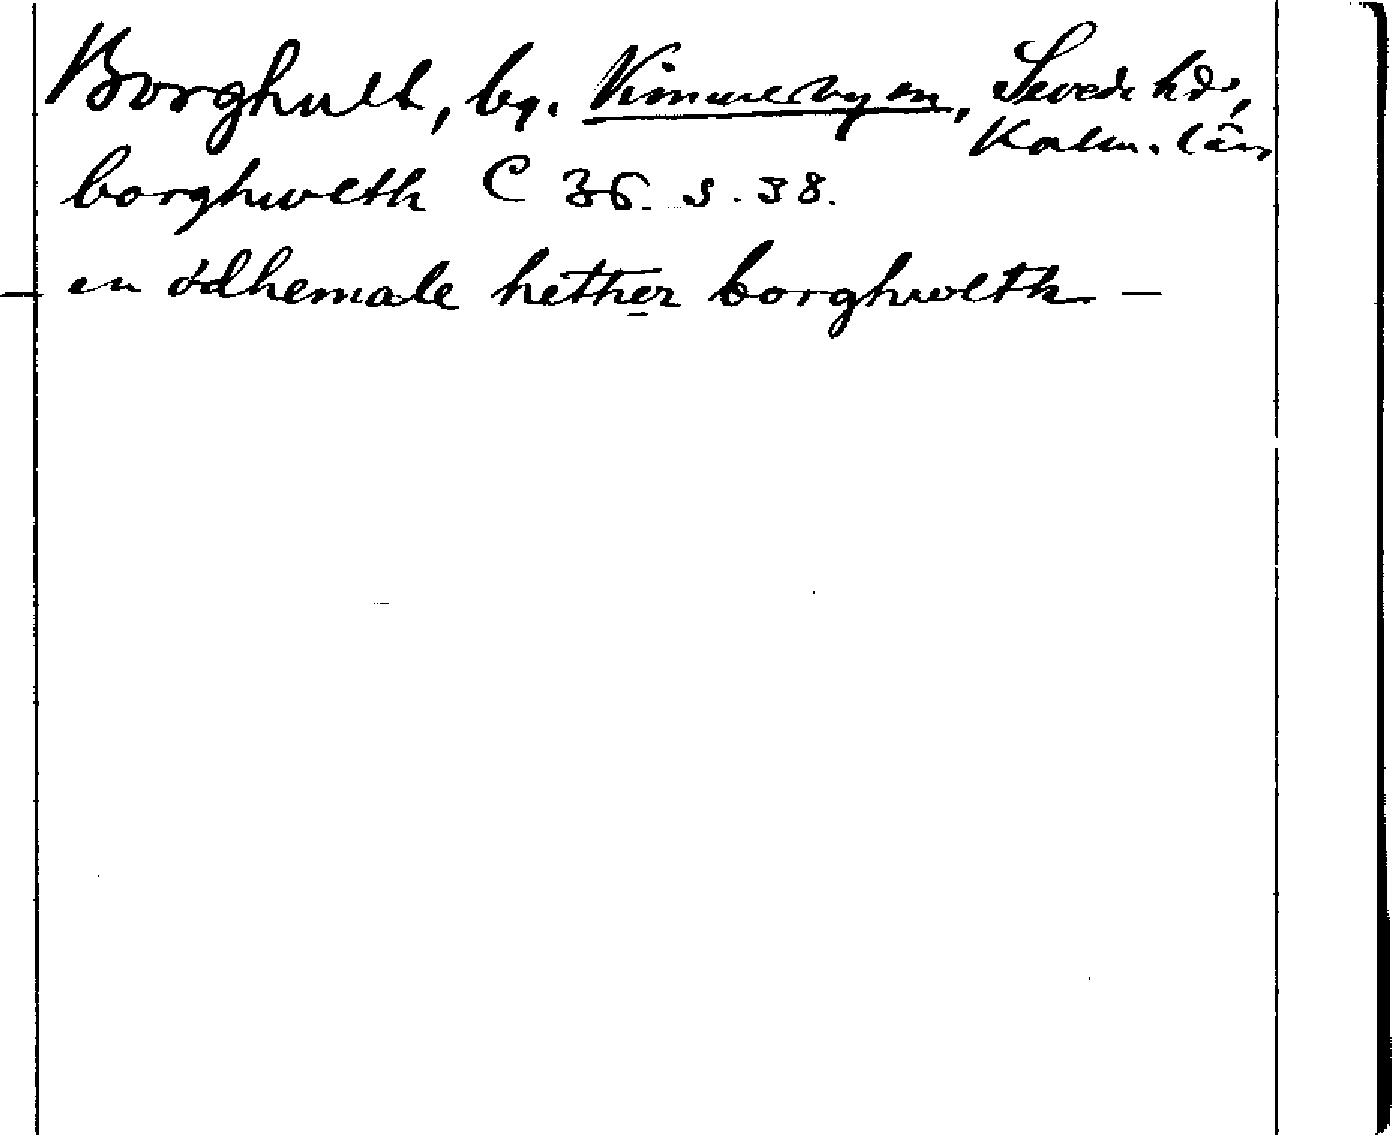 Borghult, by. Vimmerby sn, Sevede hd,
Kalm. län
borghwlth C 36. s. 38.
en ödhemale hether borghwlth —